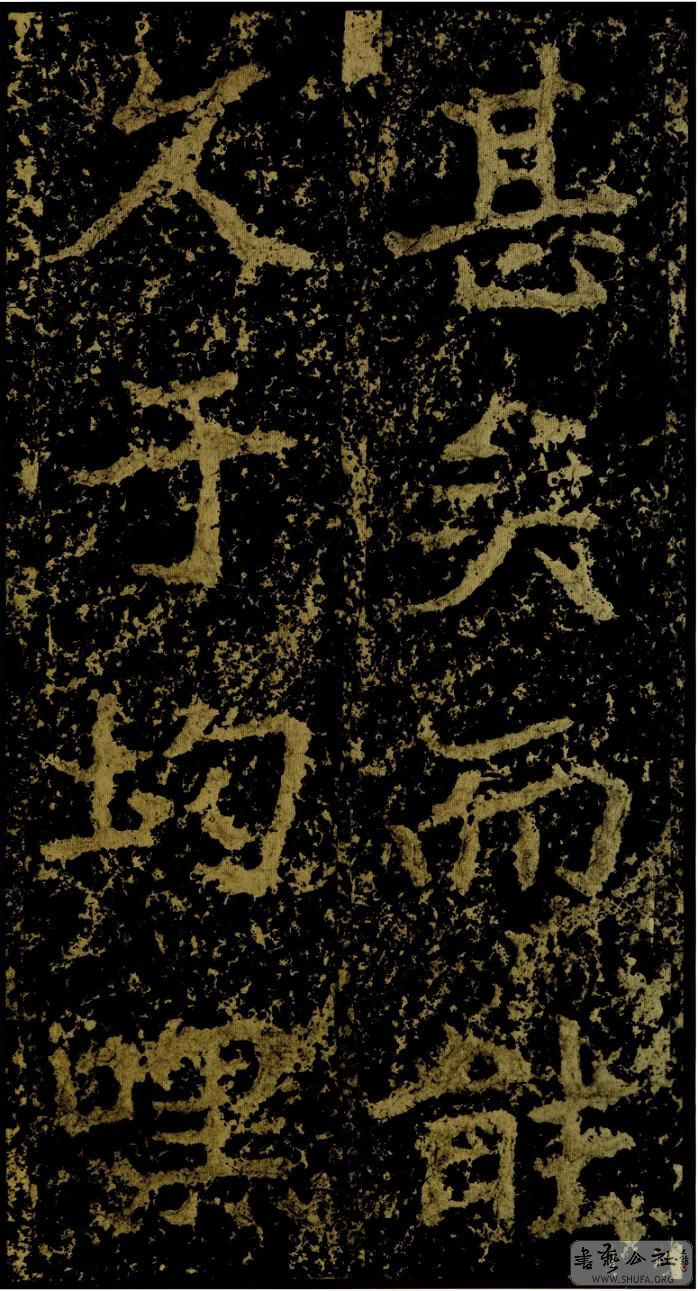 甚矣而能
久于均嘿
書藝公社
WWW.SHUFA.ORG